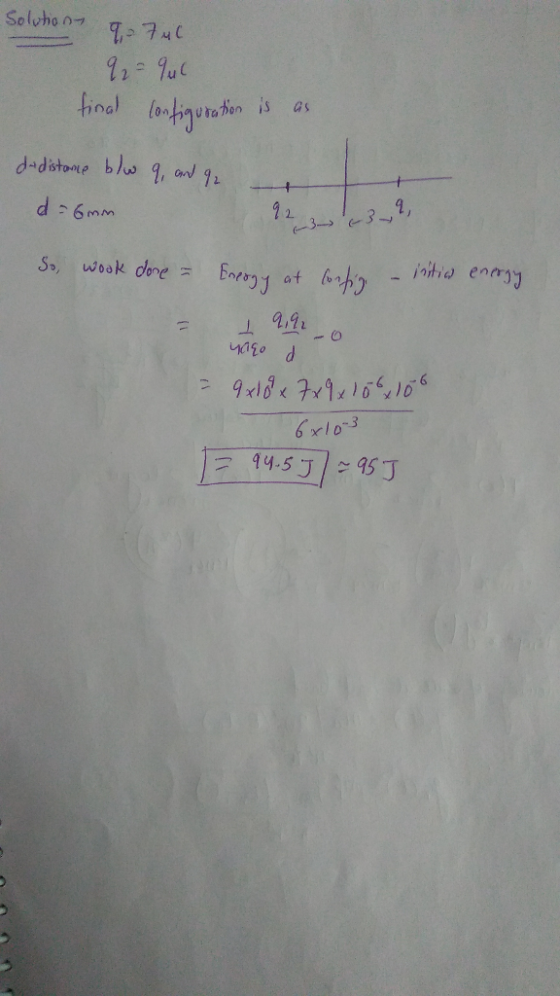 Solution→ q₁ = 7 μC
q₂ = 9 μC
final configuration is as
d→distance b/w q₁ and q₂
d = 6mm
q₂ ←3→ ←3→ q₁
So, wook done = Energy at config - initial energy
= 1/4πε₀ q₁q₂/d - 0
= 9×10⁹ × 7×9×10⁻⁶×10⁻⁶
6×10⁻³
= 94.5 J ≈ 95 J